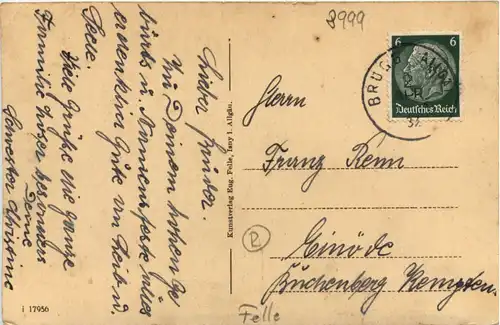 8999
Lieber Bruder.
Zu Deinem hohen Ge
burts u. Namensfeste alles
erdenklich Gute an Leib u.
Seele.
Viele Grüße die ganze
Familie
Deine
Schwester
Kunstverlag Eug. Felle, Isny i. Allgäu.
6 6
Deutsches Reich
Herrn
Franz Renn
Einöde
Buchenberg Kempten
R
i 17956
Felle